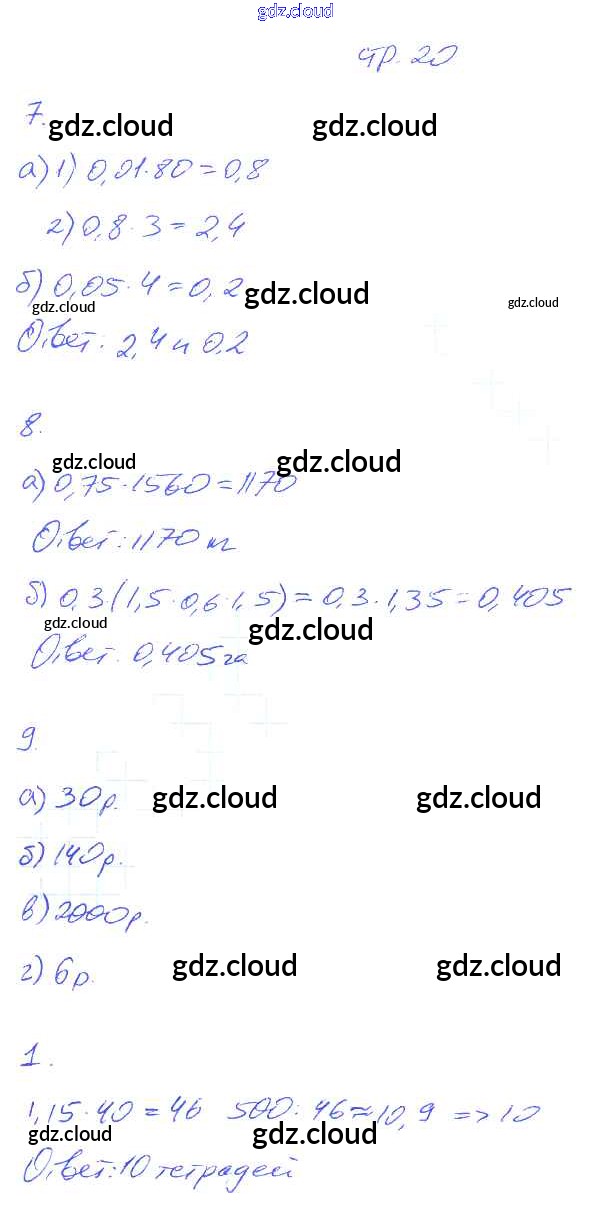 gdz.cloud
стр. 20
7.
gdz.cloud gdz.cloud
а) 1) 0,01·80=0,8
2) 0,8·3=2,4
б) 0,05·4=0,2
gdz.cloud
gdz.cloud gdz.cloud
Ответ: 2,4 и 0,2
8.
gdz.cloud gdz.cloud
а) 0,75·1560=1170
Ответ: 1170 т
б) 0,3·(1,5·0,6·1,5)=0,3·1,35=0,405
gdz.cloud gdz.cloud
Ответ. 0,405 га
9.
а) 30р. gdz.cloud gdz.cloud
б) 140р.
в) 2000р.
г) 6р. gdz.cloud gdz.cloud
1.
1,15·40=46 500:46≈10,9 => 10
gdz.cloud gdz.cloud
Ответ: 10 тетрадей